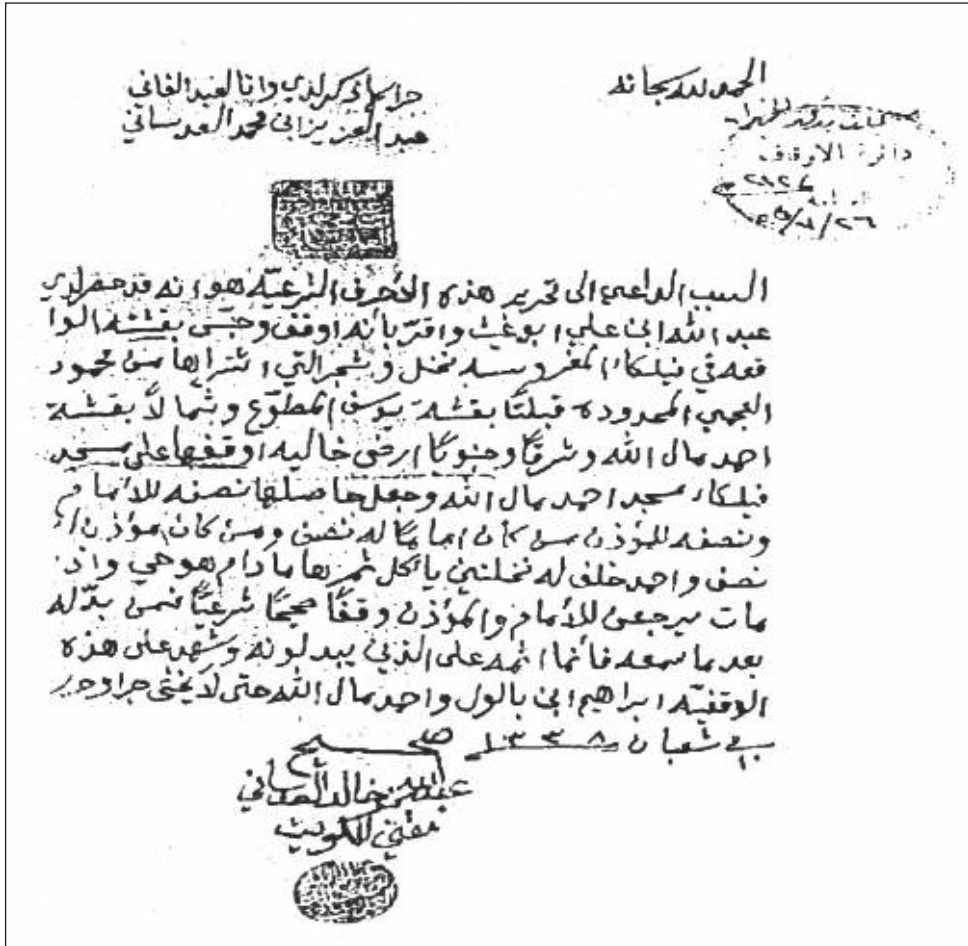 الحمد لله سبحانه
جرا ما ذكر لدي وانا العبد الفاني
عبد العزيز ابن محمد العدساني
دائرة الاوقاف
السبب الداعي الى تحرير هذه الأحرف الشرعيّه هو انه قد حضر لدي
عبد الله ابن علي ابو غيث واقرّ بأنه اوقف وحبّس بقشته الوا
قعه في فيلكا، المغروسه نخل وشجر التي اشتراها من محمود
العجمي المحدوده قبلتًا بقشة يوسف المطوّع وشمالاً بقشة
احمد مال الله وشرقًا وجنوبًا ارض خاليه اوقفها على مسجد
فيلكا، مسجد احمد مال الله وجعل حاصلها نصفه للأمام
ونصفه للمؤذن من كان امامًا له نصف ومن كان مؤذن له
نصف واحد خلف له نخلتين يأكل ثمرها مادام هو حي واذا
مات يرجعن للأمام والمؤذن وقفًا صحيحًا شرعيًّا فمن بدّله
بعد ما سمعه فأنما اثمه على الذين يبدلونه وشهد على هذه
الوقفيّه ابراهيم ابن بالول واحمد مال الله حتى لا يخفى جرا وحرر
في شعبان ١٣٣٨
صحيح
عبدالله بن خالد العدساني
مفتي الكويت